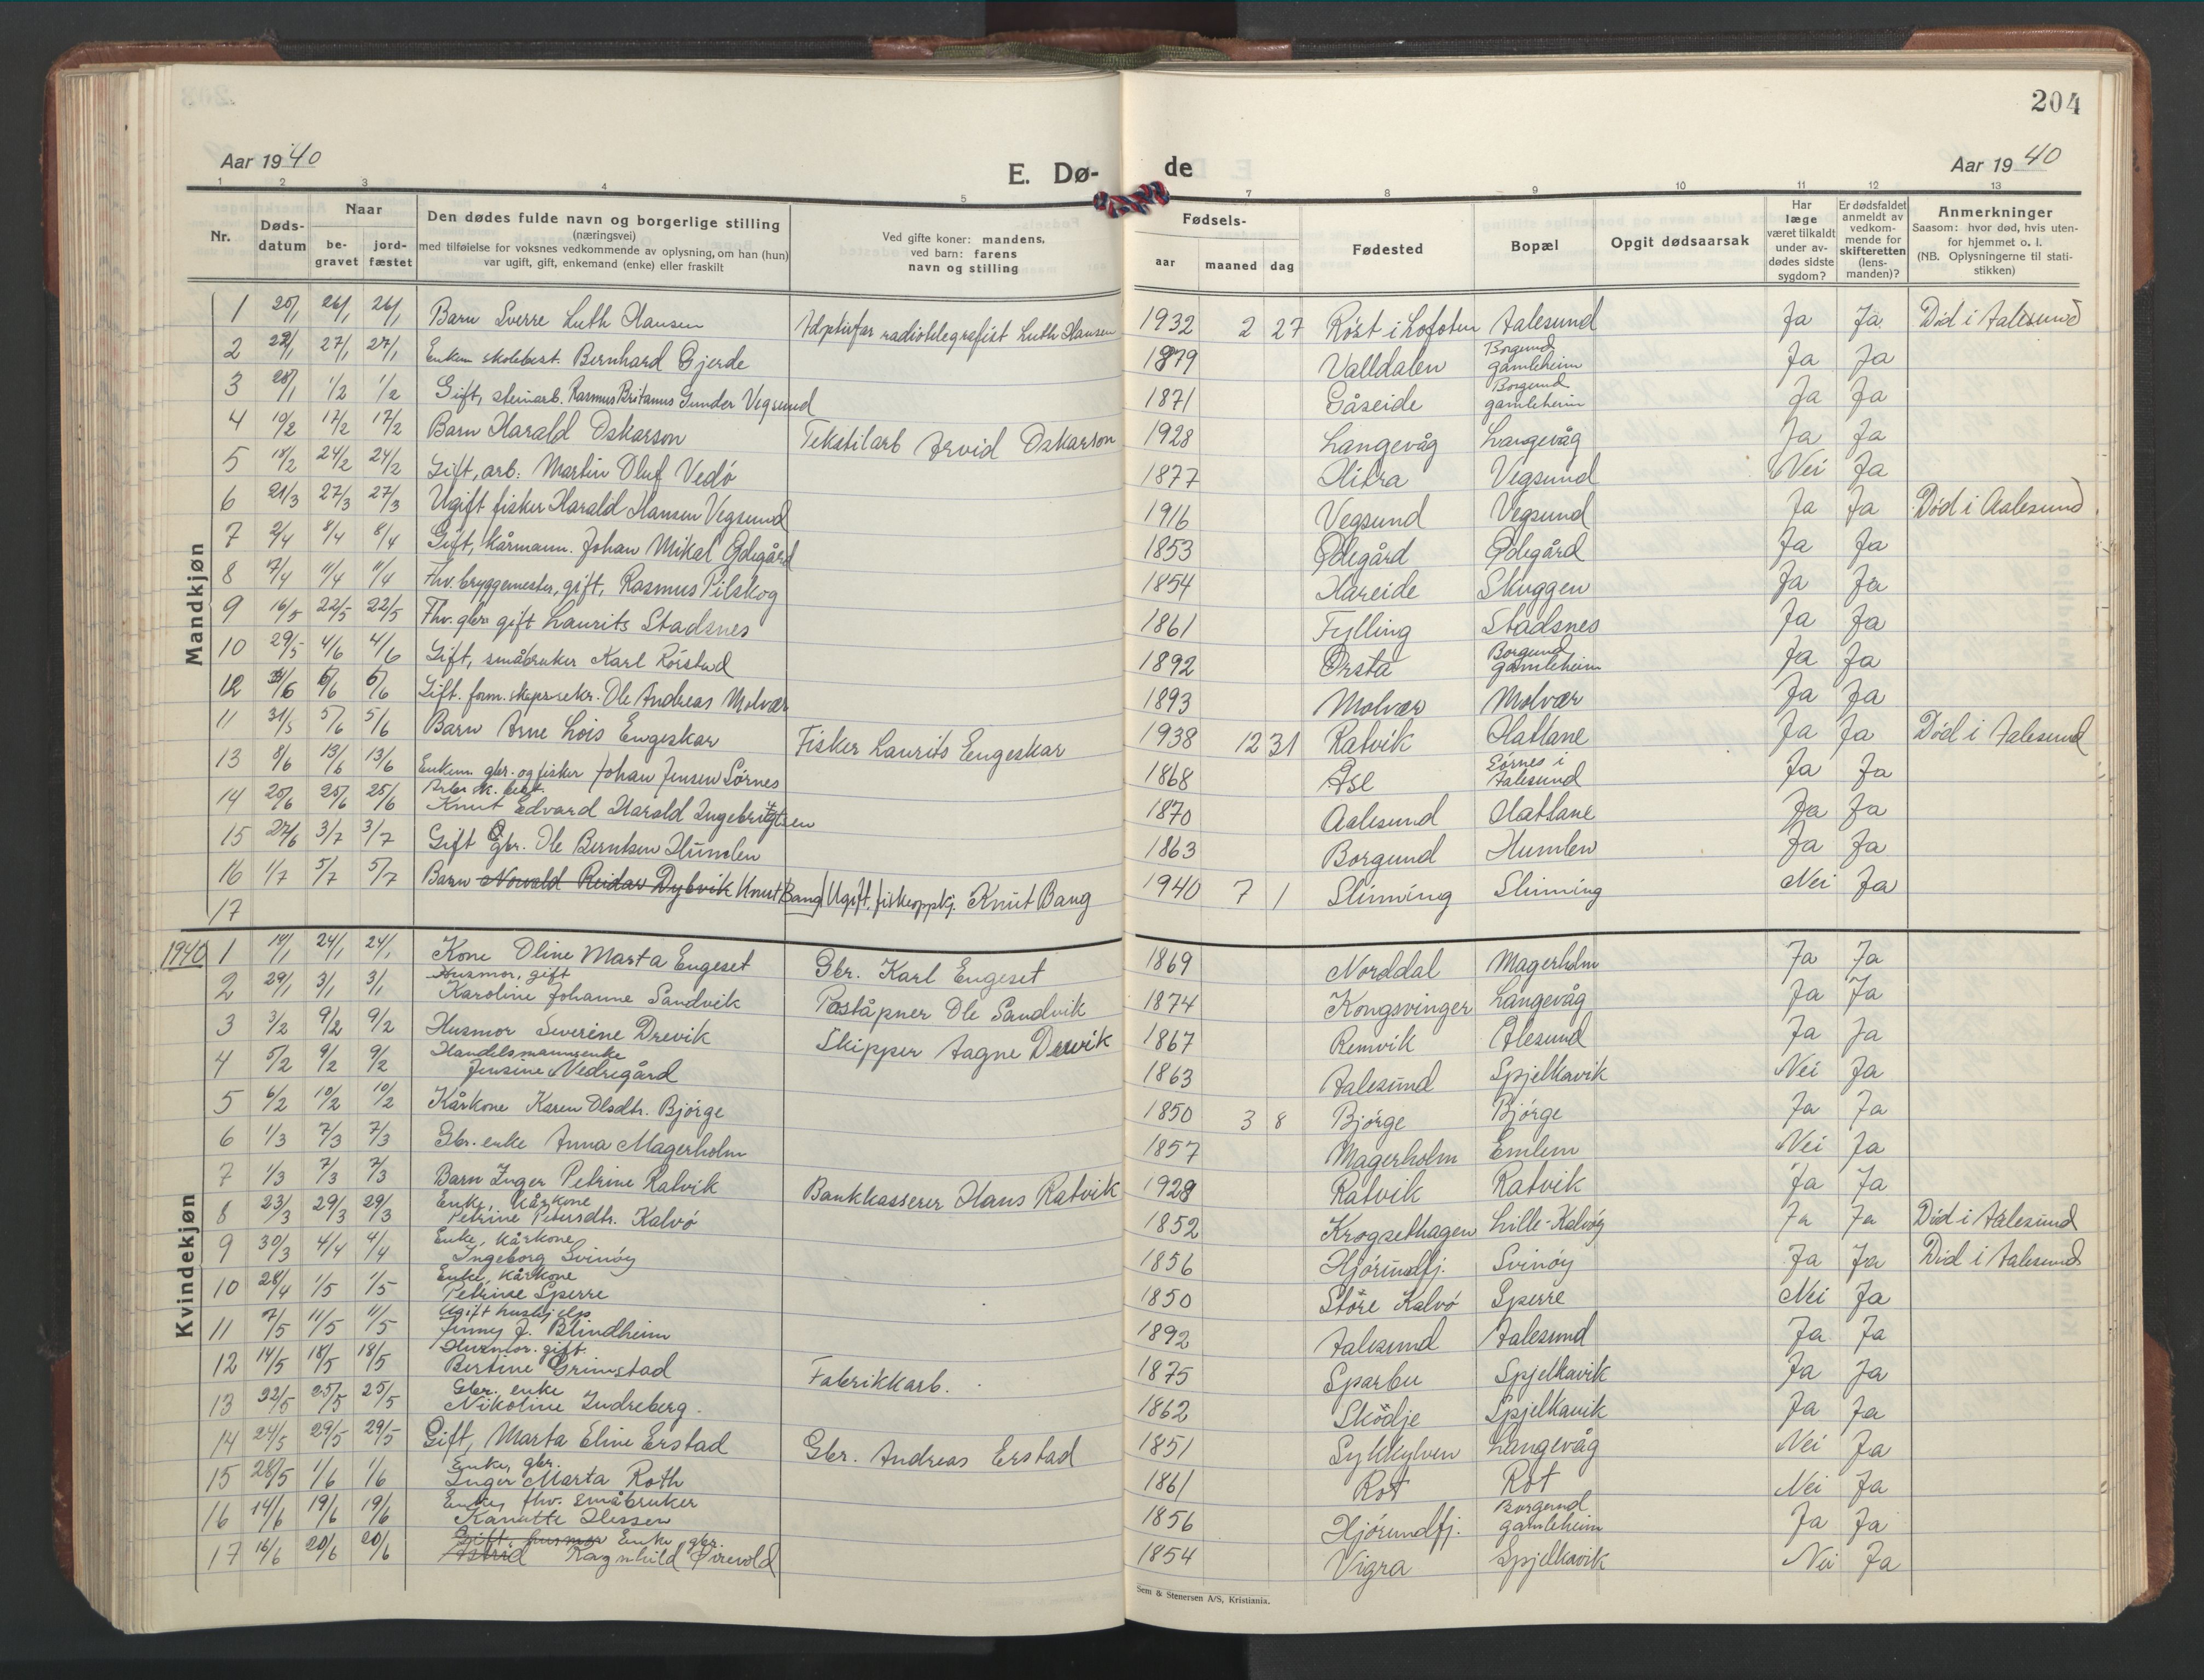 204
Aar 1940
E. Dø-
de
Aar 1940
1 2 3 4 5 7 8 9 10 11 12 13
Nr.
Døds-
datum
Naar
be-
gravet
jord-
fæstet
Den dødes fulde navn og borgerlige stilling
(næringsvei)
med tilføielse for voksnes vedkommende av oplysning, om han (hun)
var ugift, gift, enkemand (enke) eller fraskilt
Ved gifte koner: mandens,
ved barn: farens
navn og stilling
Fødsels-
aar maaned dag
Fødested
Bopæl
Opgit dødsaarsak
Har
læge
været tilkaldt
under av-
dødes sidste
sygdom?
Er dødsfaldet
anmeldt av
vedkom-
mende for
skifteretten
(lens-
manden)?
Anmerkninger
Saasom: hvor død, hvis uten-
for hjemmet o. l.
(NB. Oplysningerne til stati-
stikken)
Mandkjøn
1 25/1 26/1 26/1 Barn Sverre Luth Hansen Adoptivfar radiotelegrafist Luth Hansen 1932 2 27 Röst i Lofoten Aalesund Ja Ja Död i Aalesund
2 22/1 27/1 27/1 Enkem. skolebest. Bernhard Gjerde 1879 Valldalen Borgund gamleheim Ja Ja
3 28/1 1/2 1/2 Gift, steinarb. Rasmus Britanus Gunder Vegsund 1871 Gåseide Borgund gamleheim Ja Ja
4 10/2 17/2 17/2 Barn Harald Oskarson Tekstilarb Arvid Oskarson 1928 Langevåg Langevåg Ja Ja
5 18/2 24/2 24/2 Gift, arb. Martin Oluf Vedö 1877 Hitra Vegsund Nei Ja
6 21/3 27/3 27/3 Ugift fisker Harald Hansen Vegsund 1916 Vegsund Vegsund Ja Ja Död i Aalesund
7 2/4 8/4 8/4 Gift, kårmann. Johan Mikal Ødegård 1853 Ødegård Ødegård Ja Ja
8 7/4 11/4 11/4 Fhv. bryggemester, gift, Rasmus Pilskog 1854 Hareide Skuggen Ja Ja
9 16/5 22/5 22/5 Fhv. gbr. gift Laurits Stadsnes 1861 Fylling Stadsnes Ja Ja
10 29/5 4/6 4/6 Gift, småbruker Karl Rörstad 1892 Ørsta Borgund gamleheim Ja Ja
12 6/6 6/6 Gift. form. skaps-sekr. Ole Andreas Molvær 1893 Molvær Molvær Ja Ja
11 31/5 5/6 5/6 Barn Arne Lois Engeskar Fisker Laurits Engeskar 1938 12 31 Ratvik Hatlane Ja Ja Död i Aalesund
13 8/6 13/6 13/6 Enkem. gbr. og fisker Johan Jensen Sörnes 1868 Gse Sörnes i Aalesund Ja Ja
14 20/6 25/6 25/6 Knut Edvard Harald Ingebrigtsen 1870 Aalesund Hatlane Ja Ja
15 27/6 3/7 3/7 Gift Gbr. Ole Berntsen Humlen 1863 Borgund Humlen Ja Ja
16 1/7 5/7 5/7 Barn Norvald Reidar Dybvik Knut Bang Ugift, fiskeoppkj. Knut Bang 1940 7 1 Slinning Slinning Nei Ja
17
Kvindekjøn
1940 1 19/1 24/1 24/1 Kone Oline Marta Engeset Gbr. Karl Engeset 1869 Norddal Magerholm Ja Ja
2 29/1 3/1 3/1 Husmor, gift Karoline Johanne Sandvik Poståpner Ole Sandvik 1874 Kongsvinger Langevåg Ja Ja
3 3/2 9/2 9/2 Husmor Severine Drevik Skipper Aagne Drevik 1867 Remvik Ålesund Ja Ja
4 5/2 9/2 9/2 Handelsmannsenke Jensine Nedregård 1863 Aalesund Spjelkavik Nei Ja
5 6/2 10/2 10/2 Kårkone Karen Olsdtr. Bjørge 1850 3 8 Bjørge Bjørge Ja Ja
6 1/3 7/3 7/3 Gbr. enke Anna Magerholm 1857 Magerholm Emlem Nei Ja
7 1/3 7/3 7/3 Barn Inger Petrine Ratvik Bankkasserer Hans Ratvik 1928 Ratvik Ratvik Ja Ja
8 23/3 29/3 29/3 Enke, kårkone Petrine Petersdtr. Kalvö 1852 Krogsethagen Lille-Kalvöy Ja Ja Död i Aalesund
9 30/3 4/4 4/4 Enke, kårkone Ingeborg Svinöy 1856 Hjörundfj. Svinöy Ja Ja Död i Aalesund
10 28/4 1/5 1/5 Enke, kårkone Petrine Sperre 1850 Store Kalvö Sperre Nei Ja
11 7/5 11/5 11/5 Ugift hushjelp Jenny J. Blindheim 1892 Aalesund Aalesund Ja Ja
12 14/5 18/5 18/5 Husmor. gift. Bertine Grimstad Fabrikkarb. 1875 Sparbu Spjelkavik Ja Ja
13 22/5 25/5 25/5 Gbr. enke Nikoline Indreberg 1862 Skodje Spjelkavik Ja Ja
14 24/5 29/5 29/5 Gift, Marta Eline Erstad Gbr. Andreas Erstad 1851 Sykkylven Langevåg Nei Ja
15 28/5 1/6 1/6 Enke, gbr. Inger Marta Roth 1861 Rot Rot Nei Ja
16 14/6 19/6 19/6 Enke, fhv. småbruker Kanutte Hessen 1856 Hjörundfj. Borgund gamleheim Ja Ja
17 16/6 20/6 20/6 Gift, husmor Enke gbr. Astrid Ragnhild Ørevold 1854 Vigra Spjelkavik Nei Ja
Sem & Stenersen A/S, Kristiania.